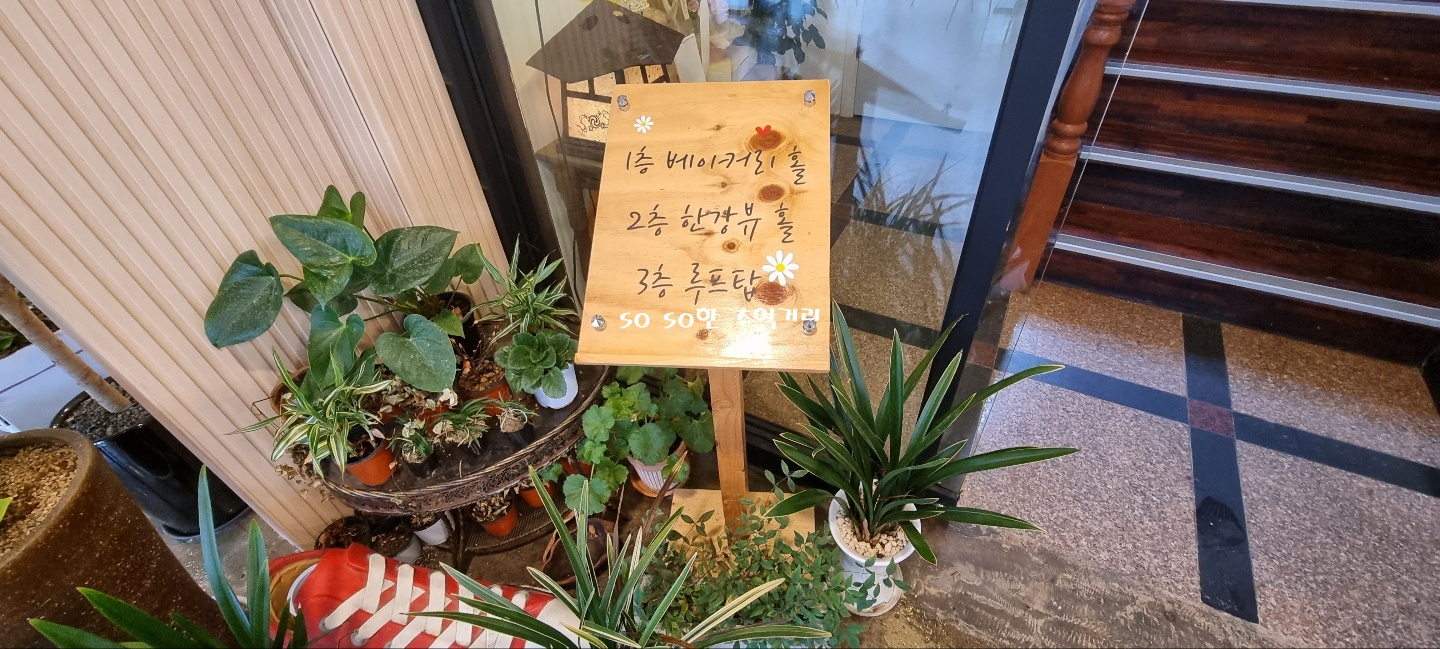 1층 베이커리 홀
2층 한강뷰 홀
3층 루프탑
so so한 추억거리